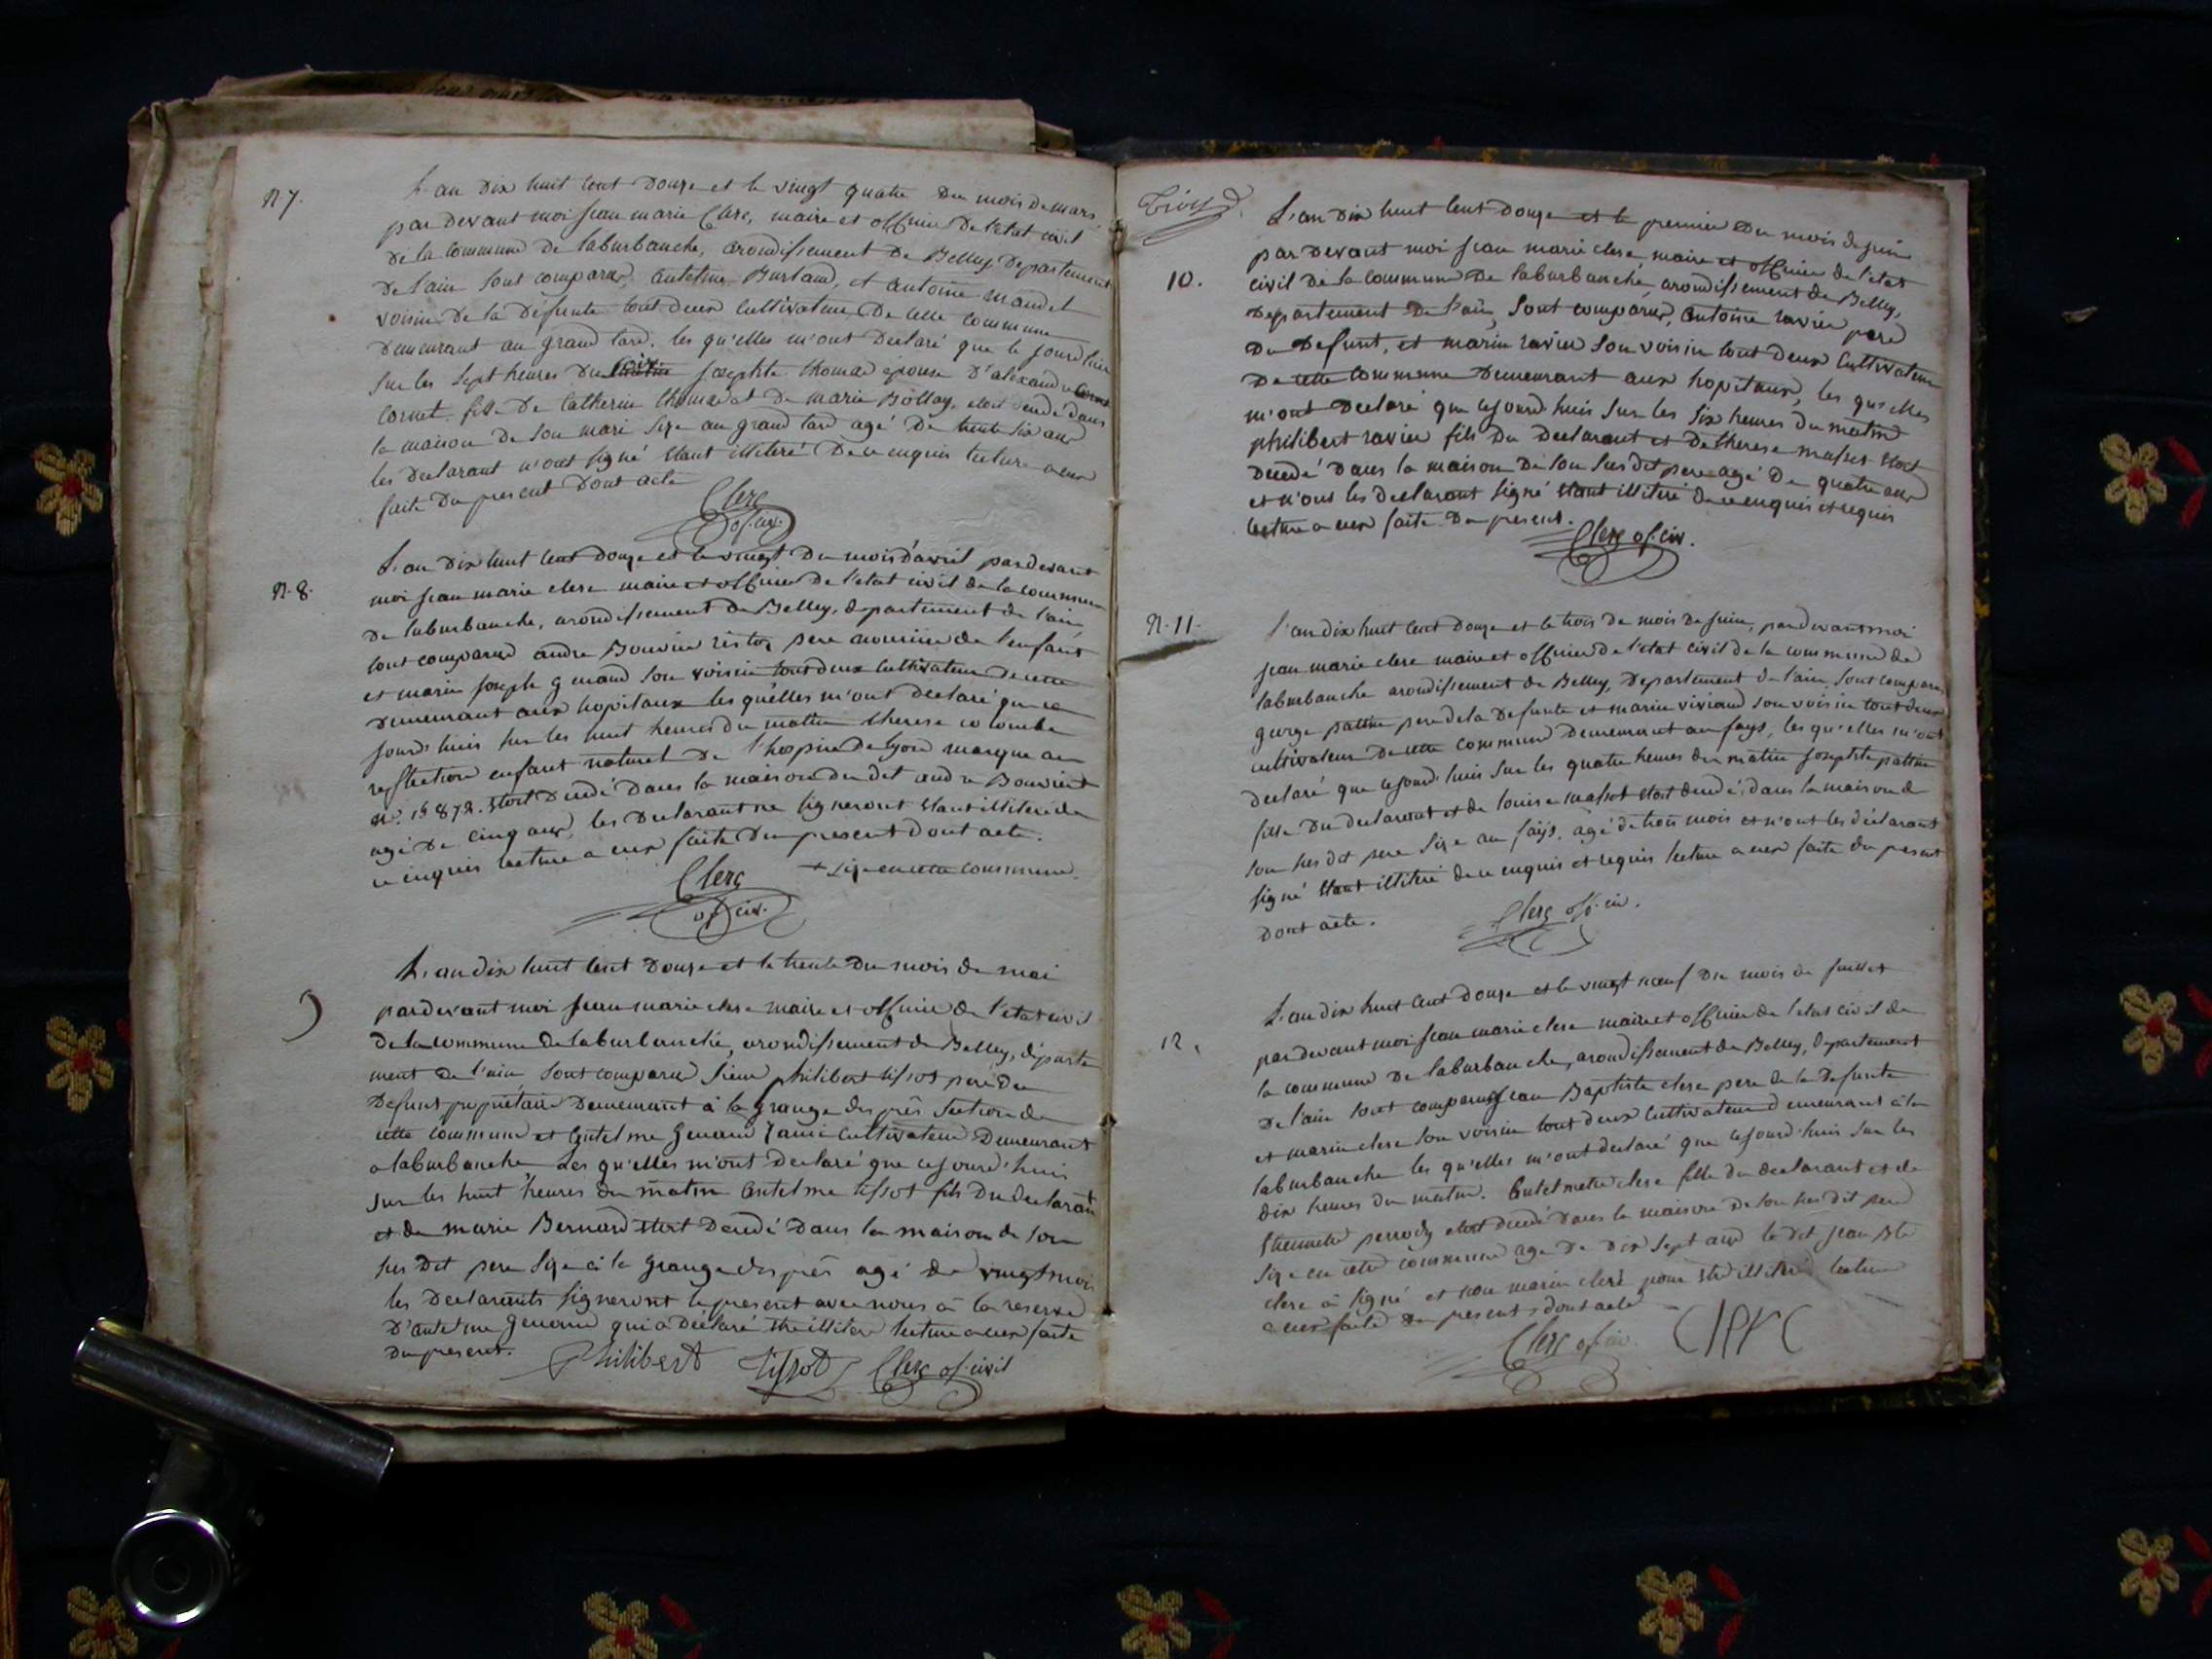 N 7.
L'an dix huit cent douze et le vingt quatre du mois de mars
par devant moi jean marie Clerc, maire et officier de l'etat civil
de la commune de laburbanche, arondissement de Belley, departement
de l'ain sont comparus, antelme Burland, et antoine mandet
voisin de la defunte tout deux cultivateur de cette commune
demeurant au grand tard. les qu'elles m'ont declaré que le jourd'hier
sur les sept heures du soir josephte thomas epouse d'alexandre
Cornet fille de Catherin thomas et de marie Bollay, etoit decedé dans
la maison de son mari size au grand tard agé de trente six ans
les declarant n'ont signé etant illiteré de ce enquis lecture a eux
faite du present dont acte
Clerc
of. civ.
N. 8.
L'an dix huit cent douze et le vingt du mois d'avril par devant
moi jean marie clerc maire et officier de l'etat civil de la commune
de laburbanche, arondissement de Belley, departement de l'ain,
sont comparus andre Bouvier ristoz pere nouricier de l'enfant
et marin joseph genand son voisin tout deux cultivateur de cette
demeurant aux hopitaux les qu'elles m'ont declaré que ce
jourd'huis sur les huit heures du matin therese colombe
reflection enfant naturel de l'hospice de lyon marque au
N°. 15872. etoit decedé dans la maison du dit andre Bouvier +
agé de cinq ans, les declarant ne signeront etant illiteré de
ce enquis lecture a eux faite du present dont acte.
+ size en cette commune.
Clerc
of. civ.
9
L'an dix huit cent douze et le trente du mois de mai
par devant moi jean marie clerc maire et officier de l'etat civil
de la commune de laburbanche, arondissement de Belley, departe
ment de l'ain, sont comparus sieur philibert tissot pere du
defunt propriétaire demeurant à la grange des prés section de
cette commune et antelme genand l'ami cultivateur demeurant
a laburbanche les qu'elles m'ont declaré que ce jourd'huis
sur les huit heures du matin antelme tissot fils du declarant
et de marie Bernard etoit decedé dans la maison de son
sus dit pere size à la grange des prés agé de vingt mois
les declarants signeront le present avec nous à la reserve
d'antelme genand qui a declaré etre illiteré lecture a eux faite
du present.
Philibert tissot Clerc of. civil
Trois
10.
L'an dix huit cent douze et le premier du mois de juin
par devant moi jean marie clerc maire et officier de l'etat
civil de la commune de laburbanche, arondissement de Belley,
departement de l'ain, sont comparus, antoine ravier pere
du defunt, et marin ravier son voisin tout deux cultivateur
de cette commune demeurant aux hopitaux, les qu'elles
m'ont declaré que ce jourd'huis sur les six heures du matin
philibert ravier fils du declarant et de therese masset etoit
decedé dans la maison de son sus dit pere agé de quatre ans
et n'ont les declarant signé etant illiteré de ce enquis et requis
lecture a eux faite du present.
Clerc of. civ.
N. 11.
L'an dix huit cent douze et le trois du mois de juin, par devant moi
jean marie clerc maire et officier de l'etat civil de la commune de
laburbanche arondissement de Belley, departement de l'ain, sont comparus
george pattin pere de la defunte et marin viviand son voisin tout deux
cultivateur de cette commune demeurant au fays, les qu'elles m'ont
declaré que ce jourd'huis sur les quatre heures du matin josephte pattin
fille du declarant et de louise masset etoit decedé dans la maison de
son sus dit pere size au fays, agé de trois mois et n'ont les déclarant
signé etant illiteré de ce enquis et requis lecture a eux faite du present
dont acte.
Clerc off. civ.
12.
L'an dix huit cent douze et le vingt neuf du mois de juillet
par devant moi jean marie clerc maire et officier de l'etat civil de
la commune de laburbanche, arondissement de Belley, departement
de l'ain sont comparus jean Baptiste clerc pere de la defunte
et marin clerc son voisin tout deux cultivateur demeurant à la
laburbanche les qu'elles m'ont declaré que ce jourd'huis sur les
dix heures du matin. antelmette clerc fille du declarant et de
etiennette perrody etoit decedé dans la maison de son sus dit pere
size en cette commune agé de dix sept ans le dit jean Bte
clerc à signé et non marin clerc pour etre illiteré lecture
a eux faite du present dont acte
Clerc of. civ. Clerc